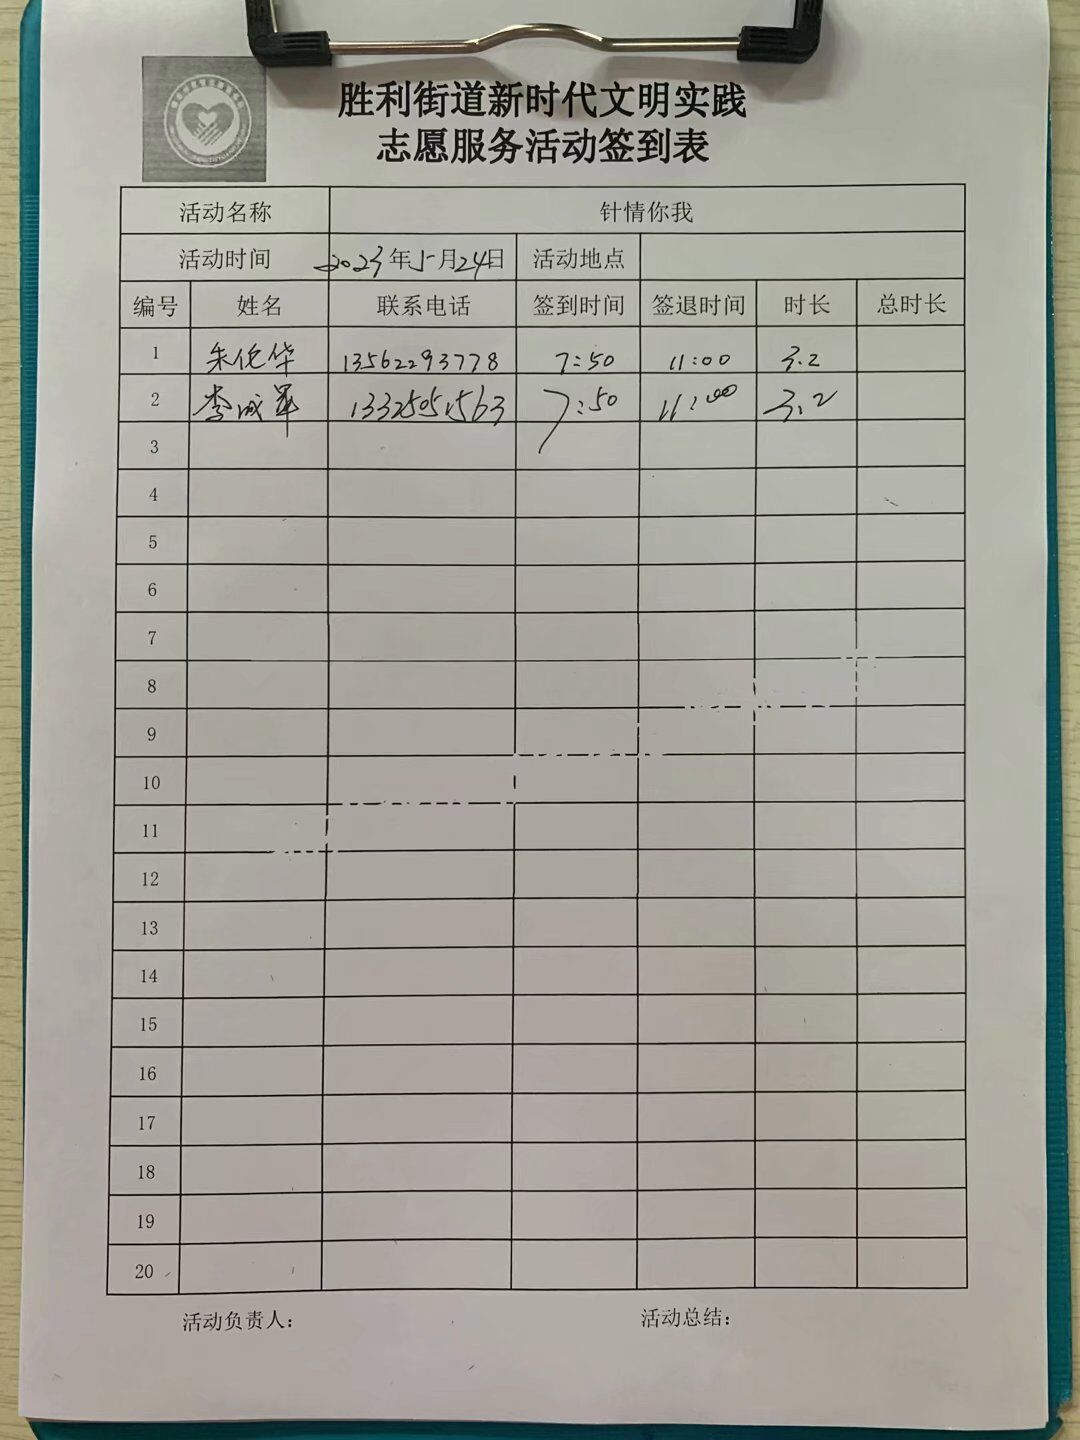 胜利街道新时代文明实践
志愿服务活动签到表
活动名称 针情你我
活动时间 2023年5月24日 活动地点
编号 姓名 联系电话 签到时间 签退时间 时长 总时长
1 朱伦华 13562293778 7:50 11:00 3.2
2 李成军 13325051563 7:50 11:00 3.2
3
4
5
6
7
8
9
10
11
12
13
14
15
16
17
18
19
20
活动负责人： 活动总结：